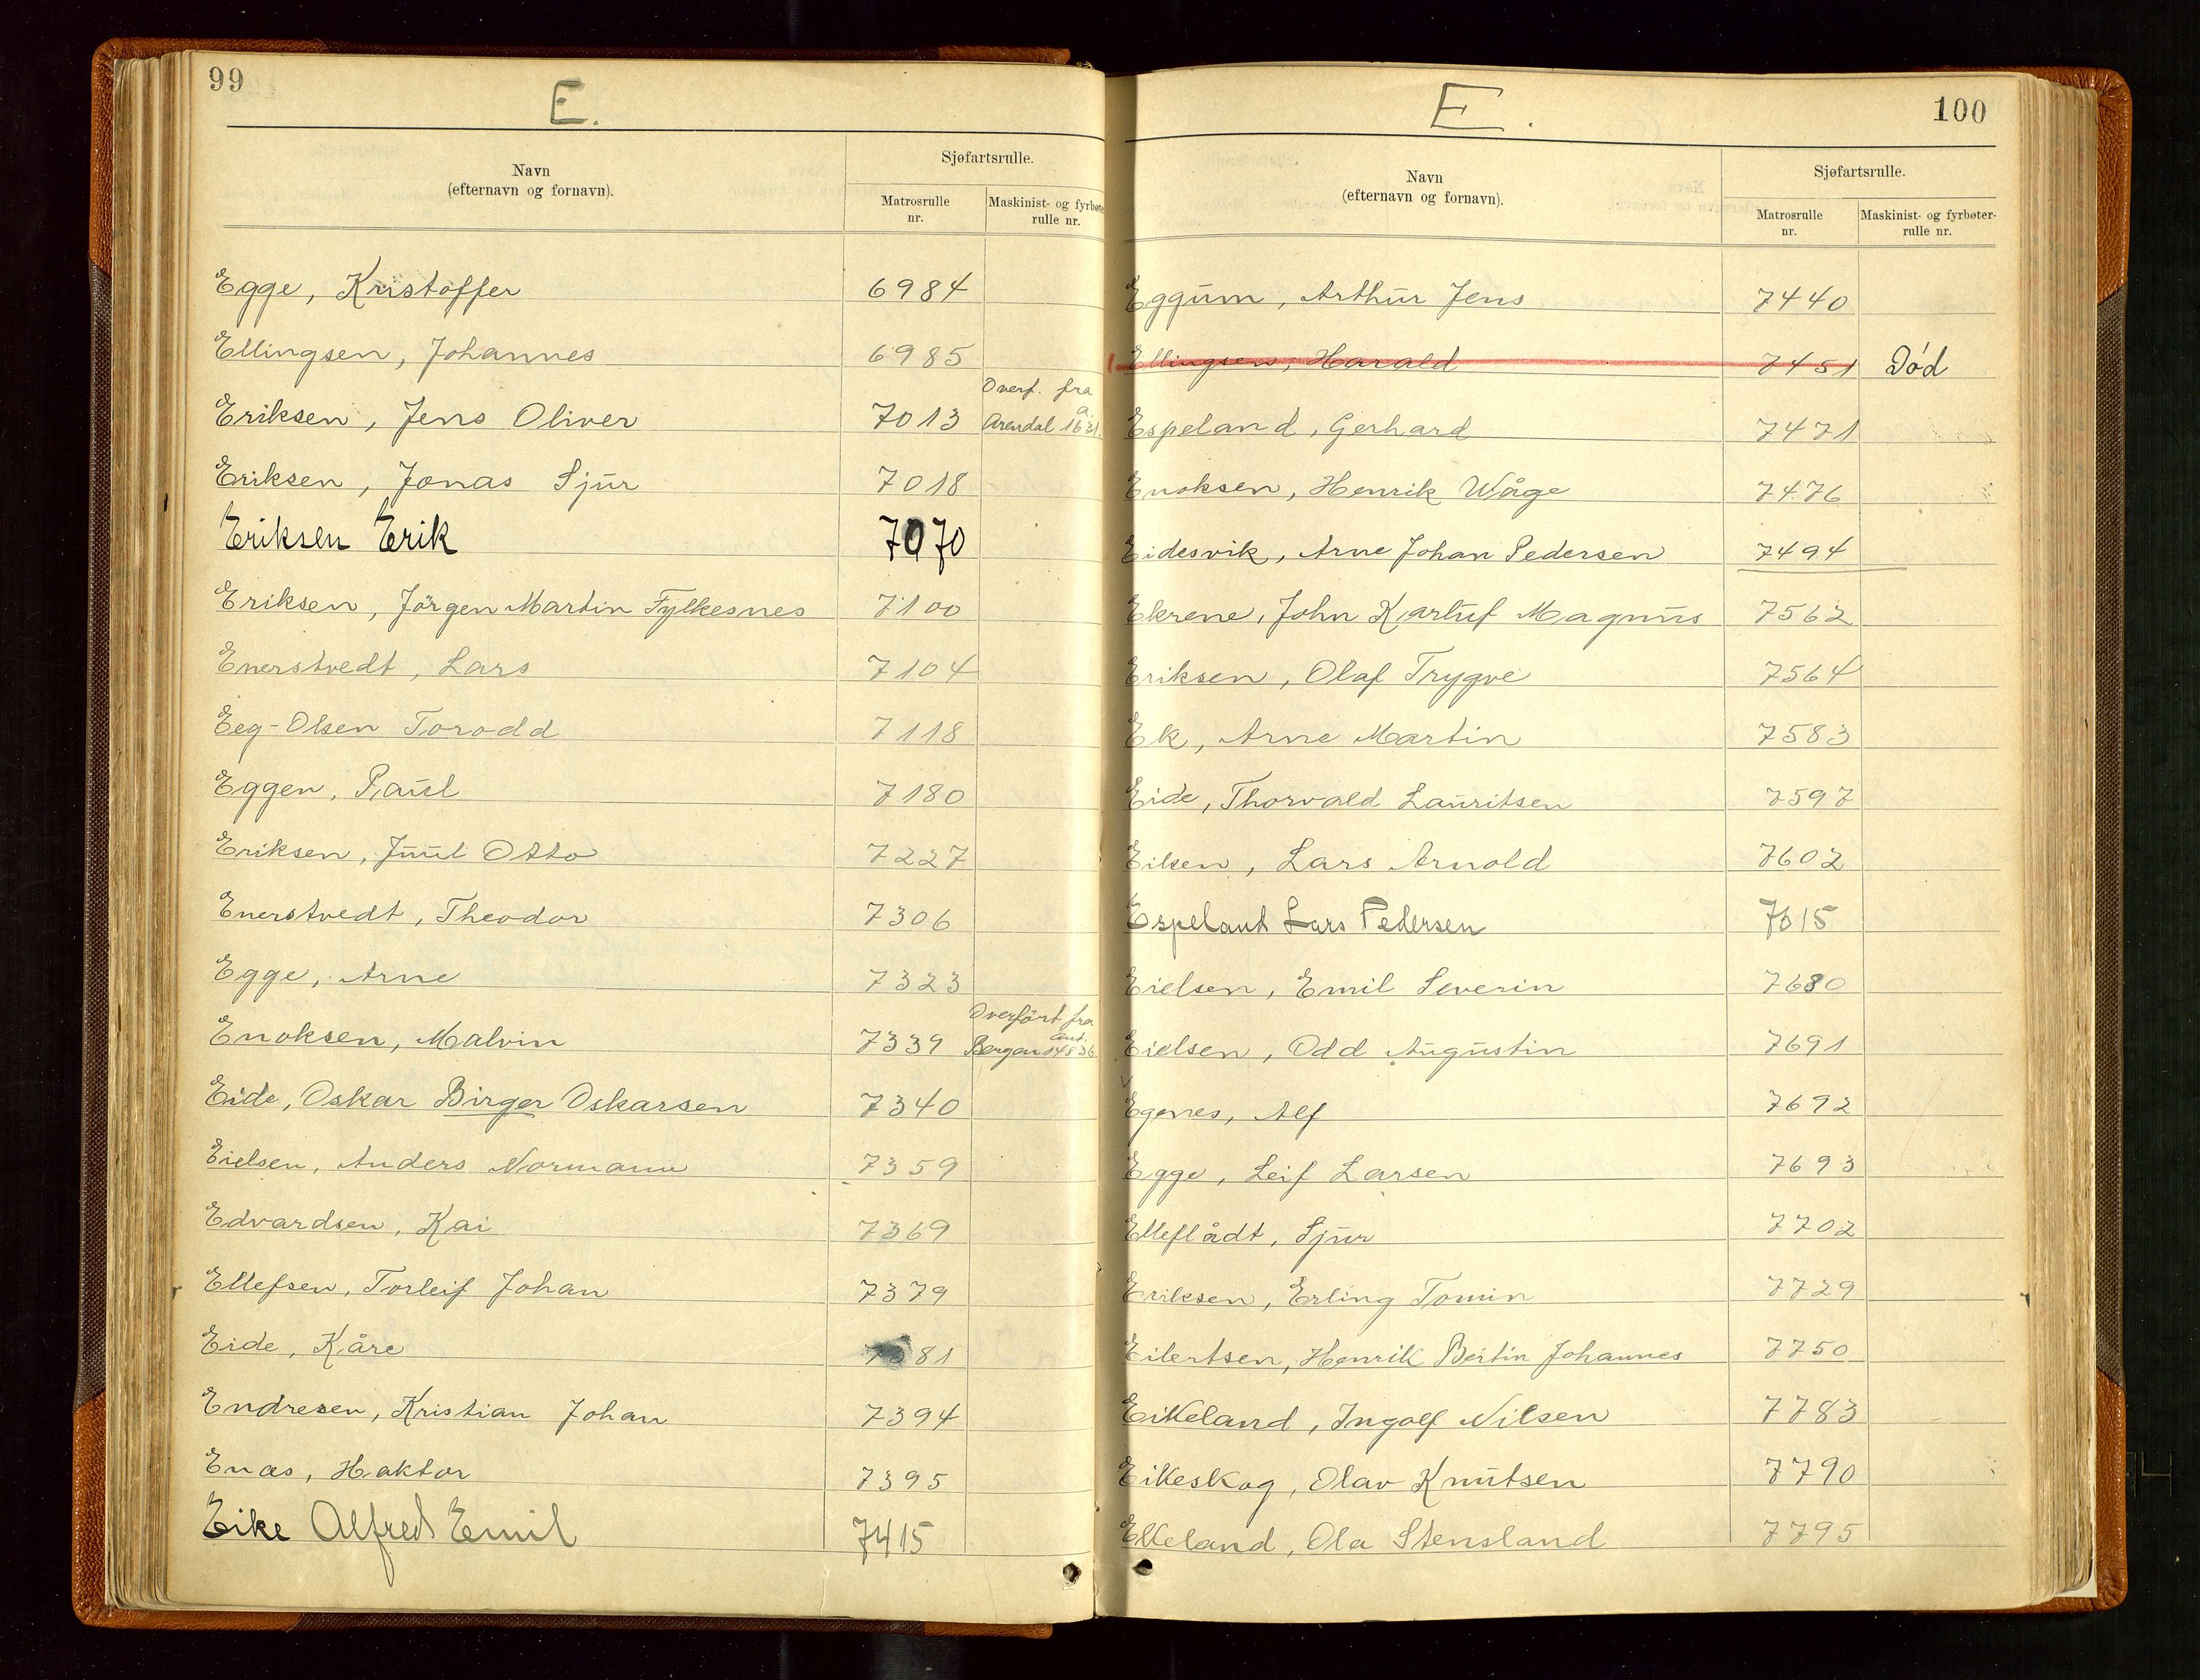 99
E.
Navn
(efternavn og fornavn).
Sjøfartsrulle.
Matrosrulle nr.
Maskinist- og fyrbøter- rulle nr.
Egge, Kristoffer 6984
Ellingsen, Johannes 6985
Eriksen, Jens Oliver 7013 Overf. fra Arendal
Eriksen, Jonas Sjur 7018
Eriksen Erik 7070
Eriksen, Jörgen Martin Fylkesnes 7100
Enerstvedt, Lars 7104
Eeg-Olsen Torodd 7118
Eggen, Paul 7180
Eriksen, Juul Otto 7227
Enerstvedt, Theodor 7306
Egge, Arne 7323
Enoksen, Malvin 7339 Overfört fra Bergen
Eide, Oskar Birger Oskarsen 7340
Eielsen, Anders Normann 7359
Edvardsen, Kai 7369
Ellefsen, Torleif Johan 7379
Eide, Kåre 7381
Endresen, Kristian Johan 7394
Enæs, Haktor 7395
Eike Alfred Emil 7415
E.
100
Navn
(efternavn og fornavn).
Sjøfartsrulle.
Matrosrulle nr.
Maskinist- og fyrbøter- rulle nr.
Eggum, Arthur Jens 7440
Ellingsen, Harald 7451 Död
Espeland, Gerhard 7471
Enoksen, Henrik Wåge 7476
Eidesvik, Arne Johan Pedersen 7494
Ekrene, John Karluf Magnus 7562
Eriksen, Olaf Trygve 7564
Ek, Arne Martin 7583
Eide, Thorvald Lauritsen 7597
Eilsen, Lars Arnold 7602
Espeland Lars Pedersen 7615
Eielsen, Emil Severin 7680
Eielsen, Odd Augustin 7691
Egenes, Alf 7692
Egge, Leif Larsen 7693
Elleflådt, Sjur 7702
Eriksen, Erling Tomin 7729
Eilertsen, Henrik Bertin Johannes 7750
Eikeland, Ingolf Nilsen 7783
Eikeskog, Olav Knutsen 7790
Elkeland, Ola Stensland 7795